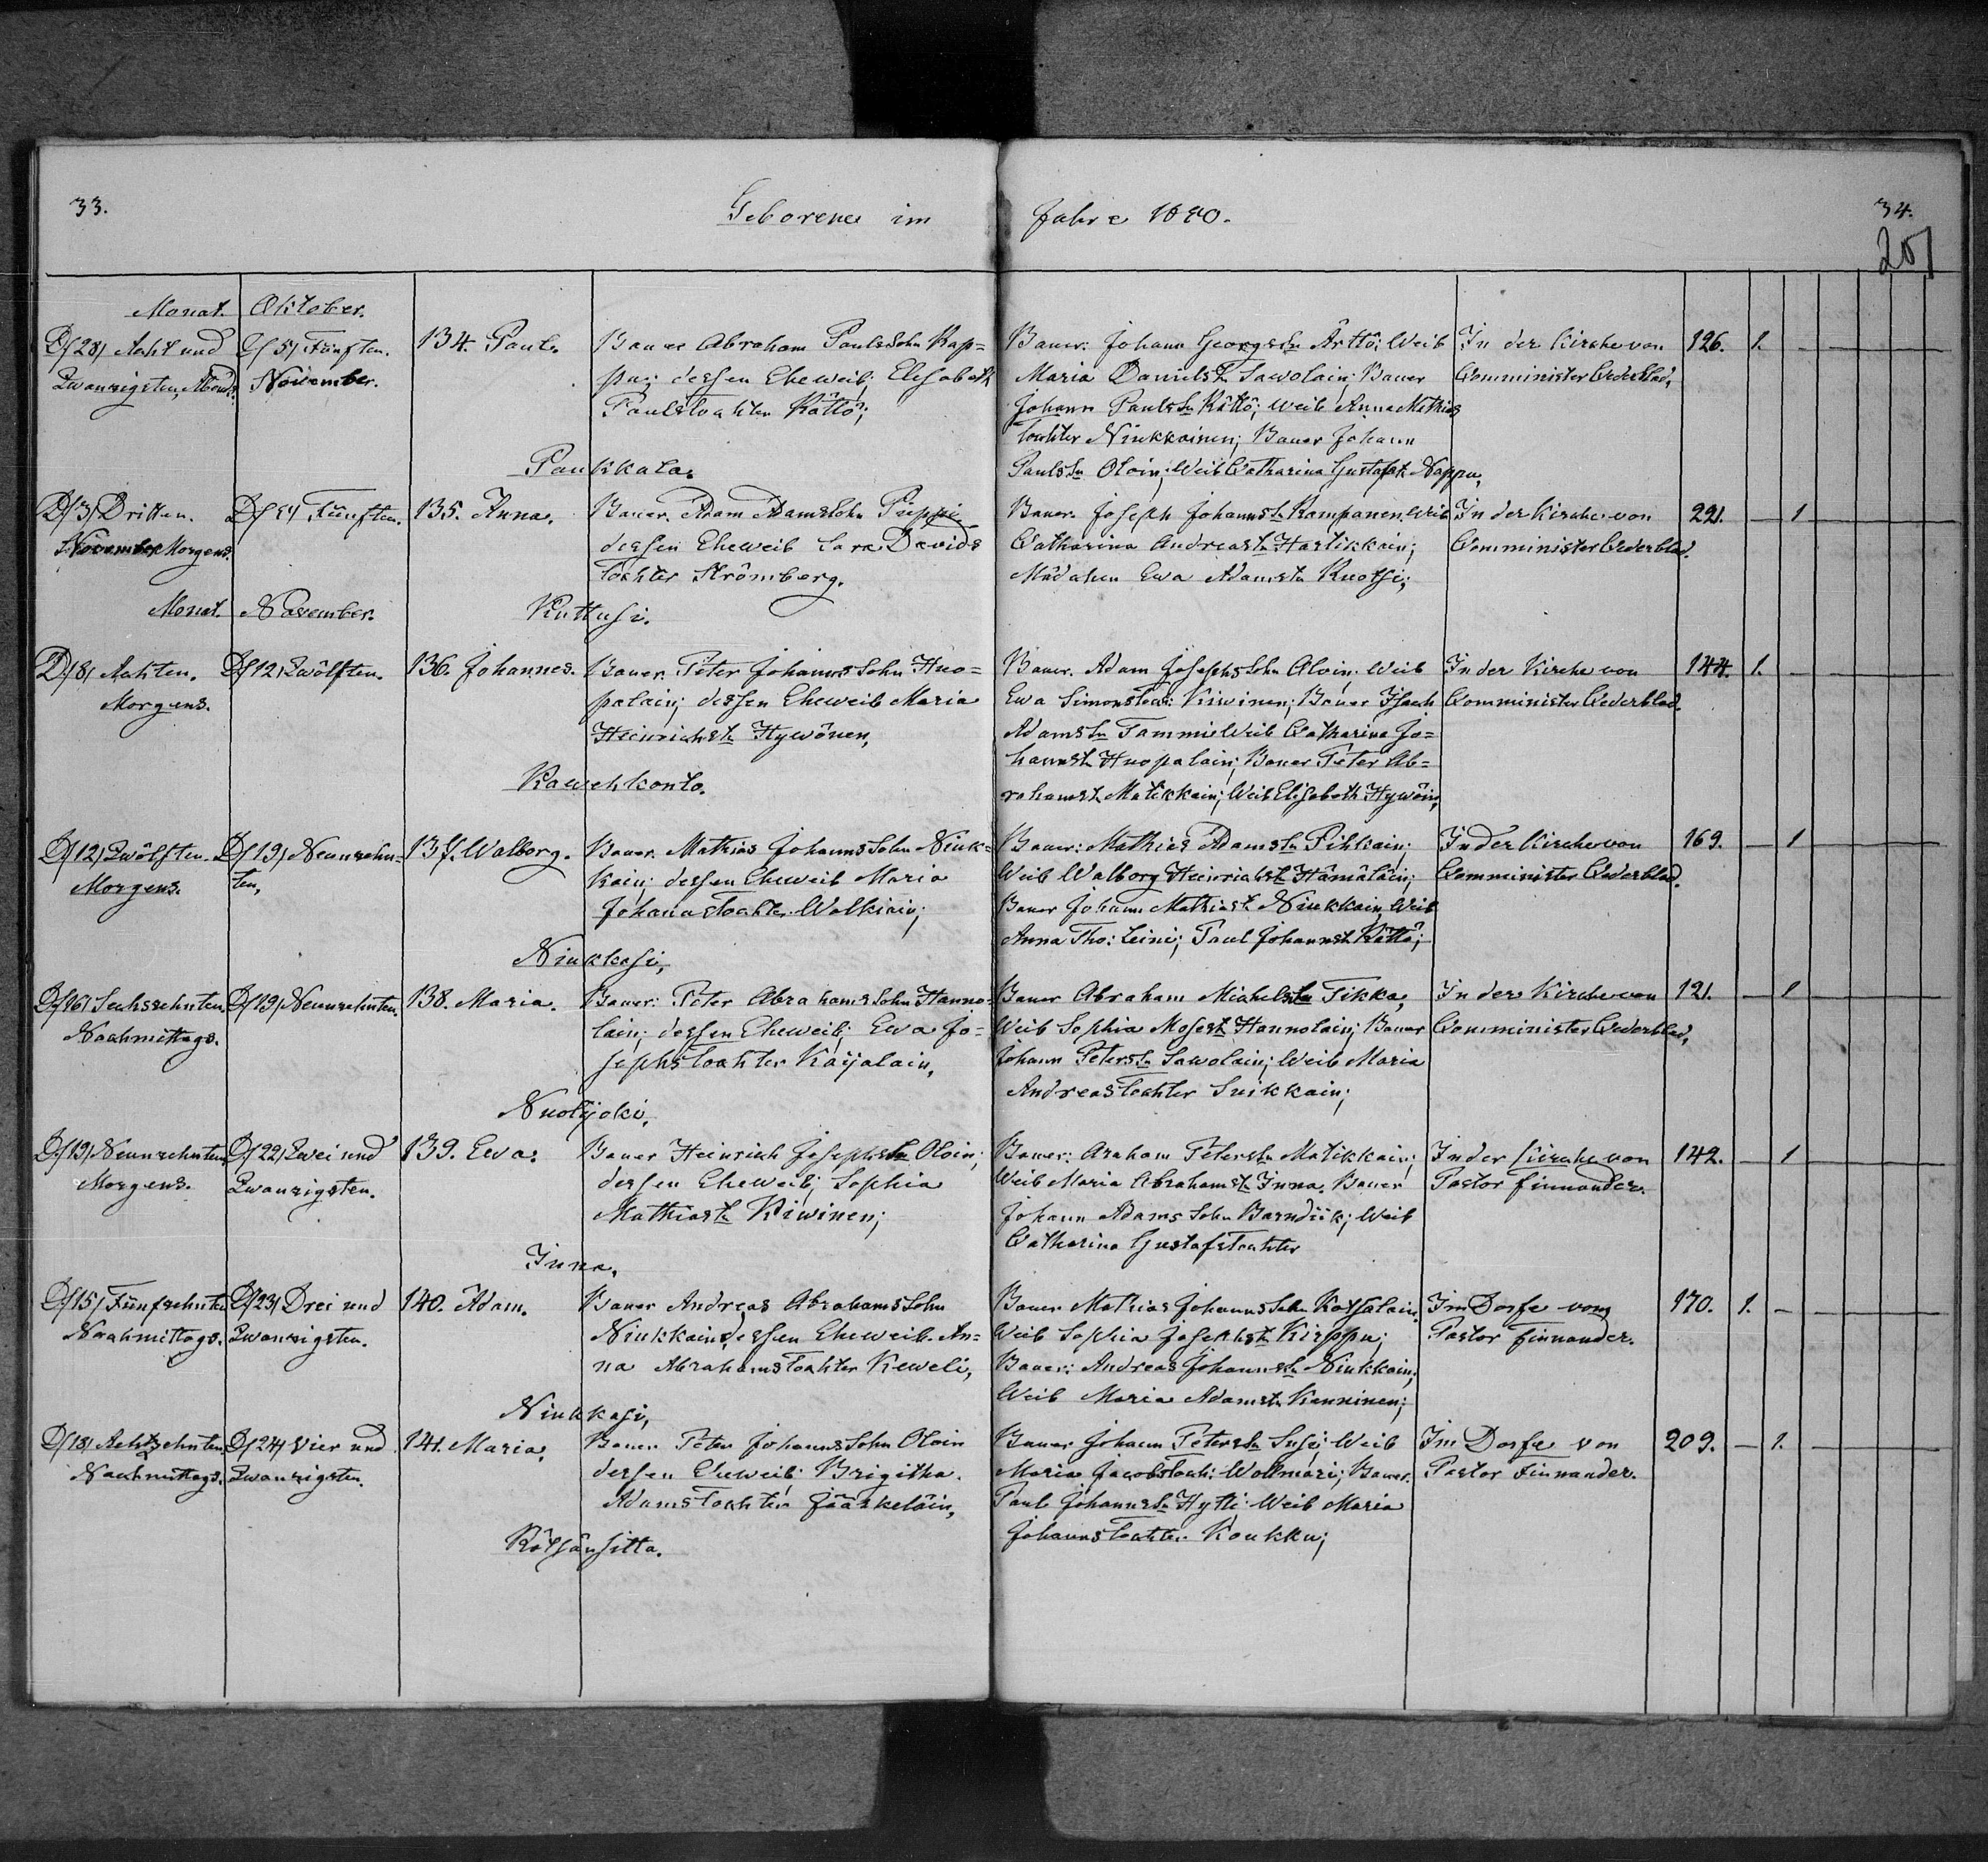 33.
Geborene im Jahre 1880.
34.
201
Monat. Oktober.
D/28/ Acht und
Zwanzigsten, Abends.
D/5/ Fünften.
November.
134. Paul.
Bauer Abraham Pauls Sohn Kap=
pu; dessen Eheweib; Elisabeth
Paulstochter Kättö;
Paukkala.
Bauer: Johann Georgs Sn Ärttö; Weib
Maria Daniels T. Sawolain; Bauer
Johann Pauls Sn Kättö; Weib Anna Mathias
tochter Niukkainen; Bauer Johann
Pauls Sn Oloin; Weib Catharina Gustafs t. Nappu,
In der Kirche von
Comminister Cederblad,
126. 1. –
D/3/ Dritten.
November Morgens.
D/5/ Fünften.
135. Anna.
Bauer. Adam Adams Sohn Puppi
dessen Eheweib Sara Davids
tochter Strömberg.
Kuttusi.
Bauer. Joseph Johanns Sn Kompanen. Weib
Catharina Andreas tr Hartikkain;
Mädchen Ewa Adams tr Kuotsi;
In der Kirche von
Comminister Cederblad.
221. – 1
Monat. November.
D/8/ Achten.
Morgens.
D/12/ Zwölften.
136. Johannes.
Bauer. Peter Johanns Sohn Huo=
palain; dessen Eheweib Maria
Heinrichs tr Hywönen,
Kawehkonto.
Bauer. Adam Josephs Sohn Oloin; Weib
Ewa Simons Toch: Kiwinen; Bauer Isach
Adams Sn Tammi Weib Catharina Jo=
hanns tr Huopalain; Bauer Peter Ab=
rahams Sn Matikkain; Weib Elisabeth Hywöin,
In der Kirche von
Comminister Cederblad.
144. 1. –
D/12/ Zwölften.
Morgens.
D/19/ Neunzehn=
ten,
137. Walborg.
Bauer. Mathias Johanns Sohn Niuk=
kain; dessen Eheweib Maria
Johanns Tochter Wolkiain;
Niukkasi,
Bauer: Mathias Adams Sn Pihkain;
Weib Walborg Heinrichs tr Hämäläin;
Bauer Johann Mathias Sn Niukkain, Weib
Anna Tho: Leini; Paul Johanns Sn Kättö;
In der Kirche von
Comminister Cederblad.
169. – 1
D/16/ Sechszehnten
Nachmittags.
D/19/ Neunzehnten.
138. Maria.
Bauer: Peter Abrahams Sohn Hanno=
lain; dessen Eheweib; Ewa Jo=
sephs tochter Kaijalain,
Nuotijoki,
Bauer Abraham Michels Sn Tikka,
Weib Sophia Moses tr Hannolain; Bauer
Johann Peters Sn Sawolain; Weib Maria
Andreas Tochter Suikkain;
In der Kirche von
Comminister Cederblad,
121. – 1
D/19/ Neunzehnten
Morgens.
D/22/ Zwei und
Zwanzigsten.
139. Ewa.
Bauer Heinrich Josephs Sn Oloin;
dessen Eheweib; Sophia
Mathias tr Kiwinen;
Inna,
Bauer: Araham Peters Sn Matikkain;
Weib Maria Abrahams tr Inna. Bauer
Johann Adams Sohn Barndiik; Weib
Catharina Gustafs tochter
In der Kirche von
Pastor Finnander.
142. – 1
D/15/ Fünfzehnten
Nachmittags.
D/23/ Drei und
Zwanzigsten.
140. Adam.
Bauer Andreas Abrahams Sohn
Niukkain, dessen Eheweib. An=
na Abrahams Tochter Keweli,
Niukkasi,
Bauer Mathias Johanns Sohn Kotsalain.
Weib Sophia Josephs tr Kirppu;
Bauer: Andreas Johanns Sn Niukkain,
Weib Maria Adams tr Kanninen;
Im Dorfe vom
Pastor Finnander.
170. 1. –
D/18/ Achtzehnten
Nachmittags.
D/24/ Vier und
Zwanzigsten.
141. Maria.
Bauer Peter Johanns Sohn Oloin
dessen Eheweib: Brigitha.
Adams Tochter Jääskeläin,
Rötsänsitta.
Bauer Johann Peters Sn Susi; Weib
Maria Jacobs Toch: Wollmari; Bauer.
Paul Johanns Sn Hytti Weib Maria
Johanns Tochter Koukku;
Im Dorfe von
Pastor Finnander.
209. – 1.